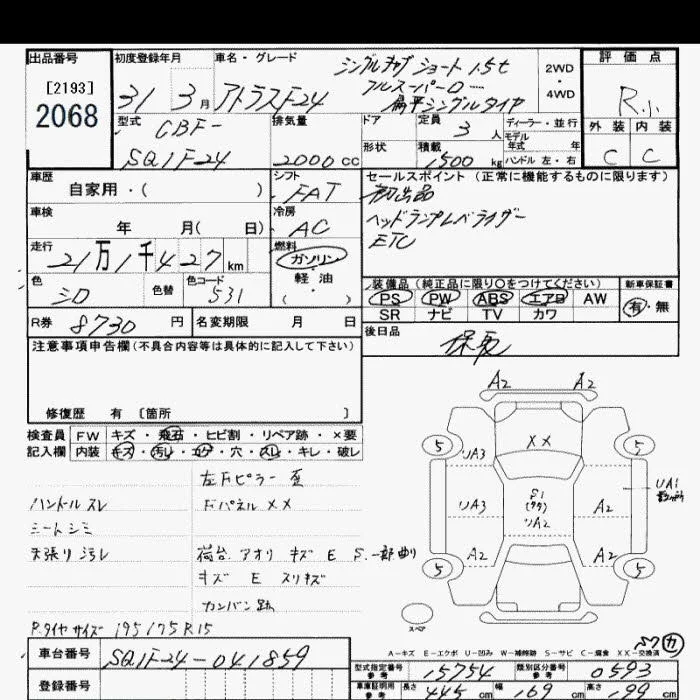 出品番号 初度登録年月 車名・グレード 評価点
[2193]
2068
31 3月 アトラスF24
シングルキャブ ショート 1.5t
フルスーパーロー
扁平シングルタイヤ
2WD
・
4WD
R.小
型式 CBF-
SQ1F24
排気量
2000cc
ドア
形状
定員 3人
積載 1500kg
ディーラー・並行
モデル
年式 年
ハンドル 左・右
外装 内装
C C
車歴
自家用・( )
シフト
FAT
セールスポイント (正常に機能するものに限ります)
初出品
ヘッドランプレベライザー
ETC
車検
年 月( 日)
冷房
AC
走行
21万1千427km
燃料
ガソリン
軽油
( )
色
シロ
色替
色コード
531
装備品(純正品に限り〇をつけてください) 新車保証書
PS PW ABS エアB AW
SR ナビ TV カワ
有・無
R券 8730円 名変期限 月 日
後日品
保・取
注意事項申告欄(不具合内容等は具体的に記入して下さい)
修復歴 有 〔箇所 〕
検査員 FW キズ・飛石・ヒビ割・リペア跡・×要
記入欄 内装 キズ・汚れ・コゲ・穴・スレ・キレ・破レ
左Fピラー 歪
ハンドル スレ Fパネル XX
シートシミ
天張り汚レ 荷台 アオリ キズ E S 一部曲り
キズ E スリキズ
カンバン跡
R.タイヤサイズ 195/75R15
A2 A2
5 XX 5
UA3
UA3 S1 UA1
UA2 A2
A2 A2
5 5
スペア
A-キズ E-エクボ U-凹み W-補修跡 S-サビ C-腐食 XX-交換済
車台番号 SQ1F24-041859
登録番号
型式指定番号
参考
15754
類別区分番号
参考
0593
車庫証明用
参考
長さ 445cm 幅 169cm 高さ 199cm